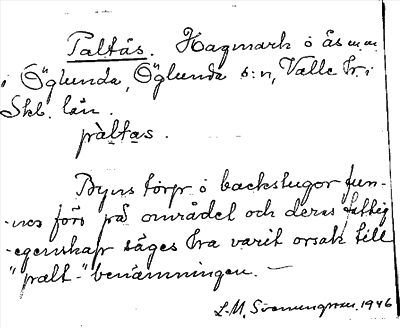 Paltås. Hagmark o ås m.m.
i Öglunda, Öglunda s:n, Valle hr. i
Skb. län.
pàltas.
Byns torp o backstugor fun-
-nos förr på området och deras fattig
-egenskap säges ha varit orsak till
"palt-" benämningen. —
L-M. Svenungsson. 1946